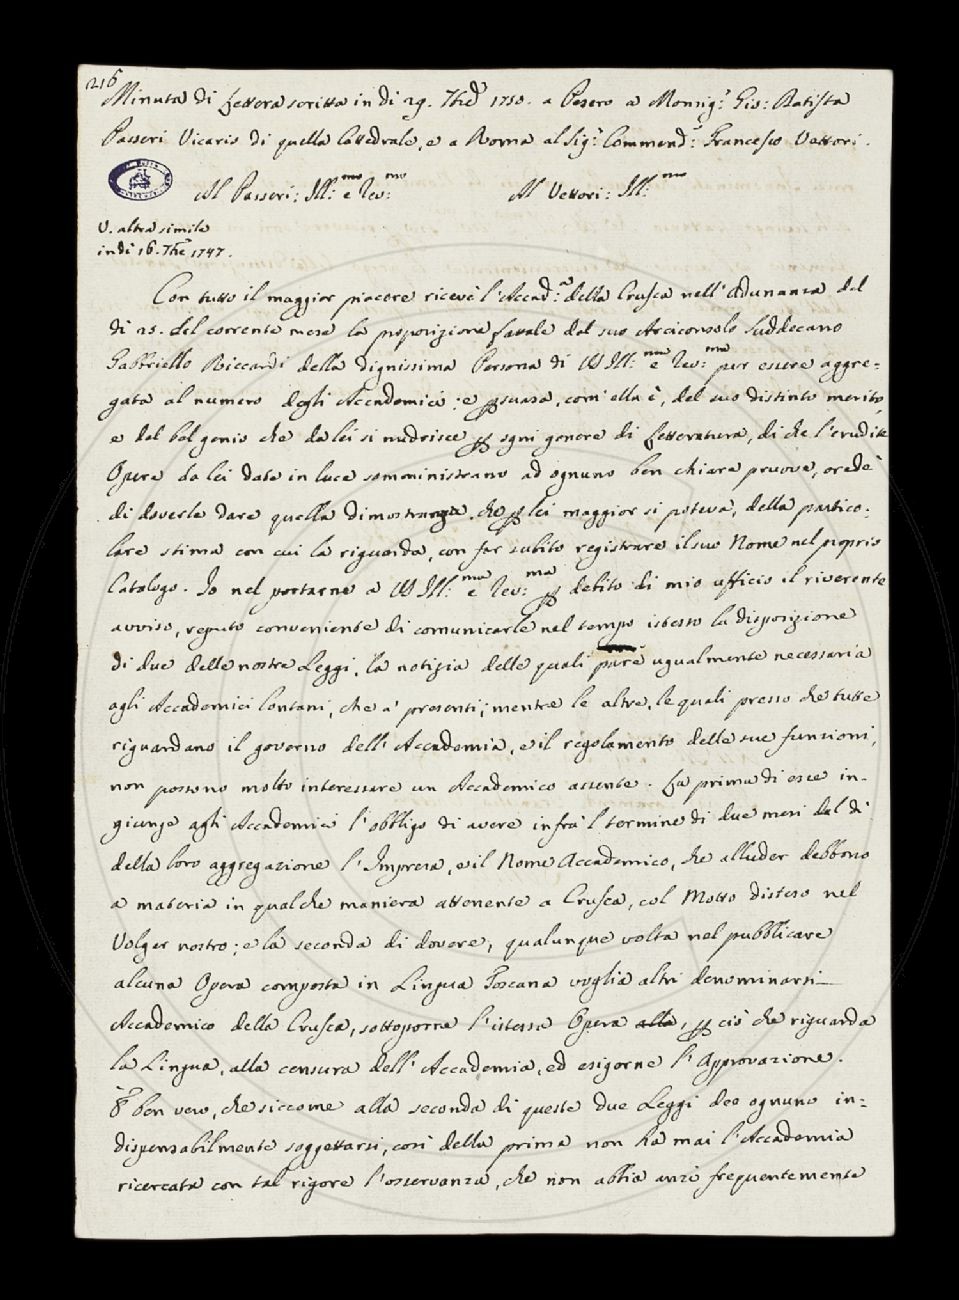 216
Minuta di Lettera scritta in dì 29. 7bre 1750. a Pesero a Monsig.r Gio: Batista
Passeri Vicario di quella Cattedrale, e a Roma al Sig.r Commend.r Francesco Vettori.
Al Passeri: Ill:mo e Rev:mo Al Vettori: Ill:mo
V. altra simile
in dì 16. 7bre 1747.
Con tutto il maggior piacere ricevè l'Accad:a della Crusca nell'Adunanza del
dì 25. del corrente mese la proposizione fattale dal suo Arciconsolo Suddecano
Gabbriello Riccardi della dignissima Persona di VS Ill:ma e Rev:ma per essere aggre=
gata al numero degli Accademici; e psuasa, com'ella è, del suo distinto merito,
e del bel genio che da lei si nudrisce p ogni genere di Letteratura, di che l'erudite
Opere da lei date in luce somministrano ad ognuno ben chiare pruove, credè
di doverle dare quella dimostranza, che p lei maggior si poteva, della partico=
lare stima con cui la riguarda, con far subito registrare il suo Nome nel proprio
Catalogo. Io nel portarne a VS Ill:ma e Rev:ma p debito di mio ufficio il riverente
avviso, reputo conveniente di comunicarle nel tempo istesso la disposizione
di due delle nostre Leggi, la notizia delle quali pare ugualmente necessaria
agli Accademici lontani, che a' presenti; mentre le altre, le quali presso che tutte
riguardano il governo dell'Accademia, e il regolamento delle sue funzioni,
non possono molto interessare un Accademico assente. La prima di esse in=
giunge agli Accademici l'obbligo di avere infra 'l termine di due mesi dal dì
della loro aggregazione l'Impresa, e il Nome Accademico, che alluder debbono
a materia in qualche maniera attenente a Crusca, col Motto disteso nel
Volgar nostro; e la seconda di dovere, qualunque volta nel pubblicare
alcuna Opera composta in Lingua Toscana voglia altri denominarsi
Accademico della Crusca, sottoporre l'istessa Opera alla, p ciò che riguarda
la Lingua, alla censura dell'Accademia, ed esigerne l'Approvazione.
È ben vero, che siccome alla seconda di queste due Leggi dee ognuno in=
dispensabilmente soggettarsi, così della prima non ha mai l'Accademia
ricercata con tal rigore l'osservanza, che non abbia anzi frequentemente